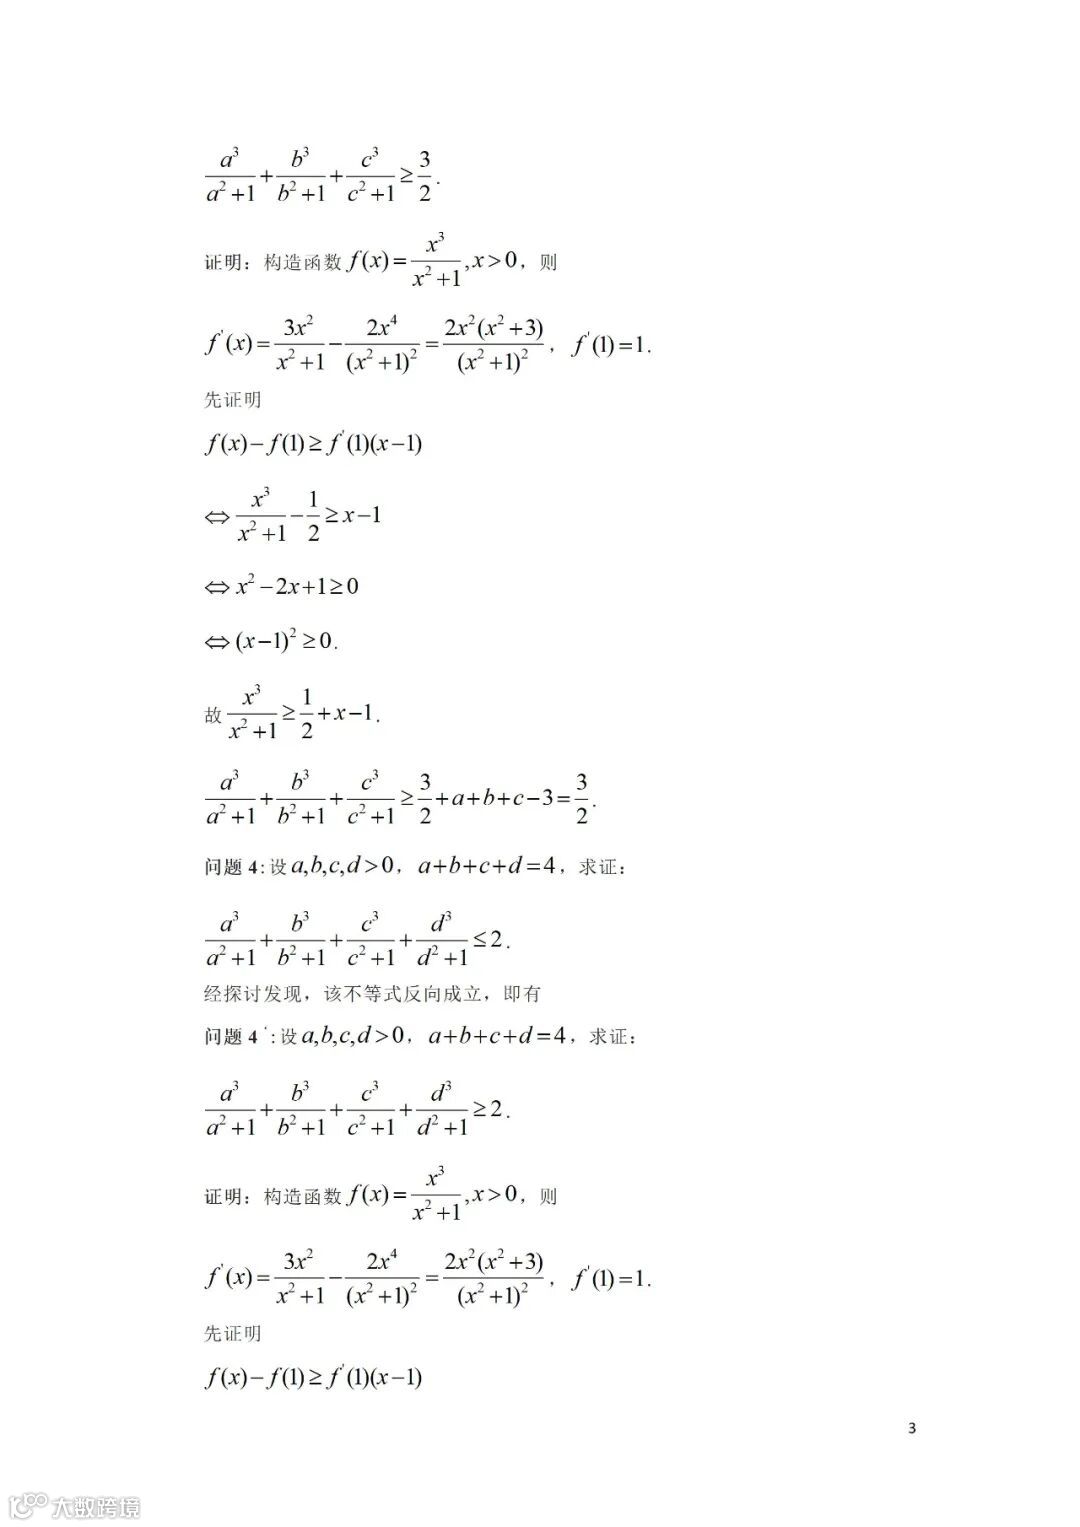 a³/(a²+1) + b³/(b²+1) + c³/(c²+1) ≥ 3/2.
证明：构造函数 f(x) = x³/(x²+1), x>0，则
f'(x) = 3x²/(x²+1) − 2x⁴/(x²+1)² = 2x²(x²+3)/(x²+1)²， f'(1)=1.
先证明
f(x)−f(1) ≥ f'(1)(x−1)
⇔ x³/(x²+1) − 1/2 ≥ x−1
⇔ x²−2x+1≥0
⇔ (x−1)² ≥0.
故 x³/(x²+1) ≥ 1/2 + x−1.
a³/(a²+1) + b³/(b²+1) + c³/(c²+1) ≥ 3/2 + a+b+c−3 = 3/2.
问题 4：设 a,b,c,d>0， a+b+c+d=4，求证：
a³/(a²+1) + b³/(b²+1) + c³/(c²+1) + d³/(d²+1) ≤2.
经探讨发现，该不等式反向成立，即有
问题 4'：设 a,b,c,d>0， a+b+c+d=4，求证：
a³/(a²+1) + b³/(b²+1) + c³/(c²+1) + d³/(d²+1) ≥2.
证明：构造函数 f(x) = x³/(x²+1), x>0，则
f'(x) = 3x²/(x²+1) − 2x⁴/(x²+1)² = 2x²(x²+3)/(x²+1)²， f'(1)=1.
先证明
f(x)−f(1) ≥ f'(1)(x−1)
3
大数跨境